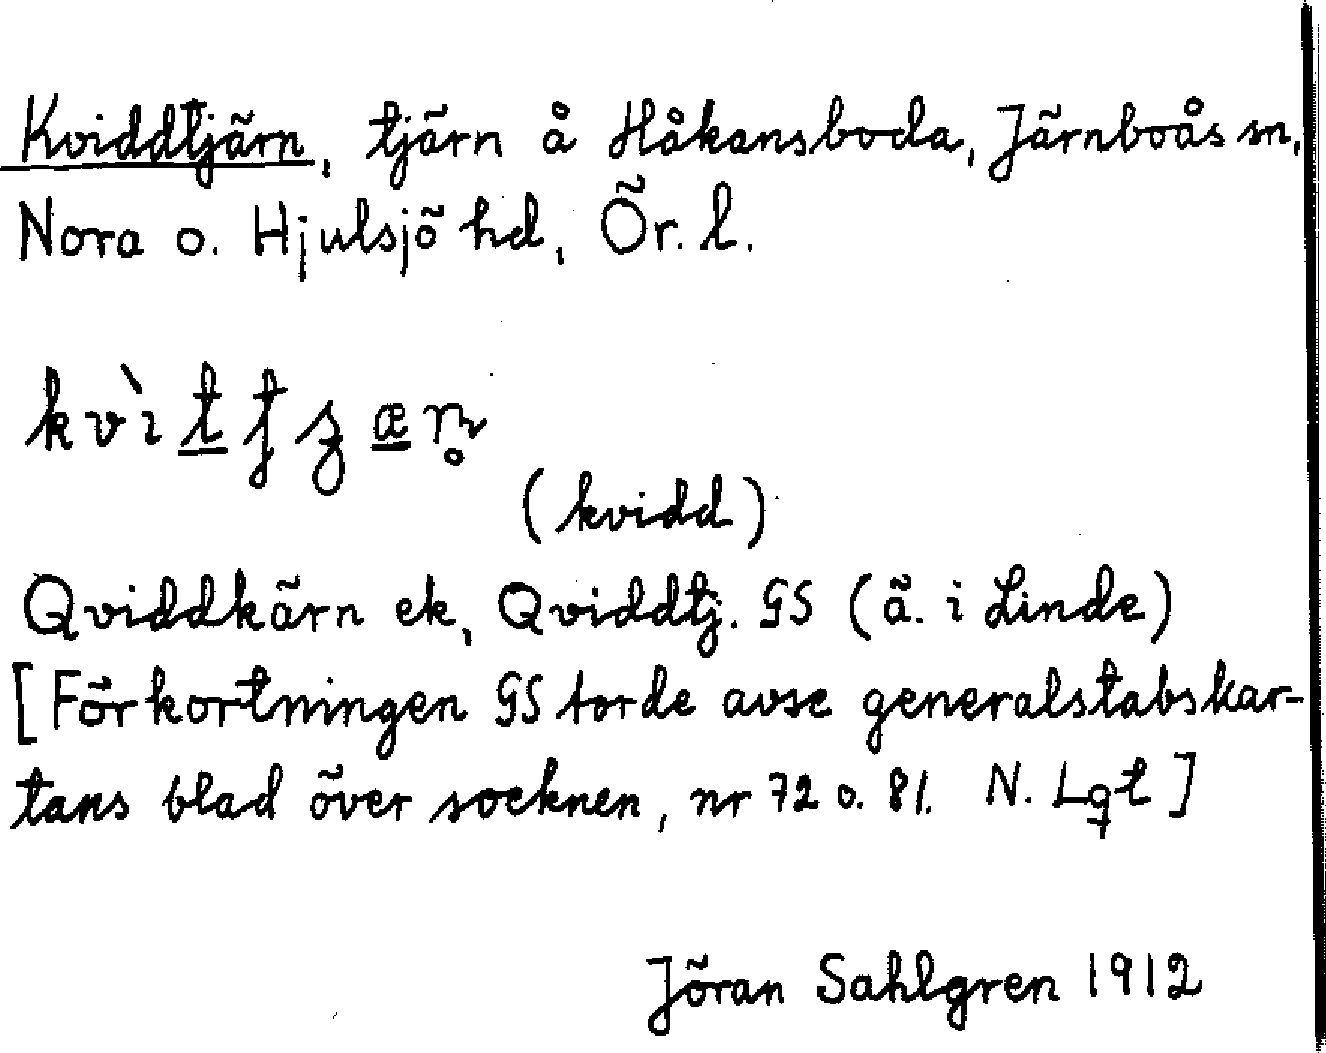 Kviddtjärn, tjärn å Håkansboda, Järnboås sn,
Nora o. Hjulsjö hd, Ör. l.
(kvidd)
Qviddkärn ek, Qviddtj. GS (ä. i Linde)
[Förkortningen GS torde avse generalstabskar-
tans blad över socknen, nr 72 o. 81. N. Lgt]
Jöran Sahlgren 1912